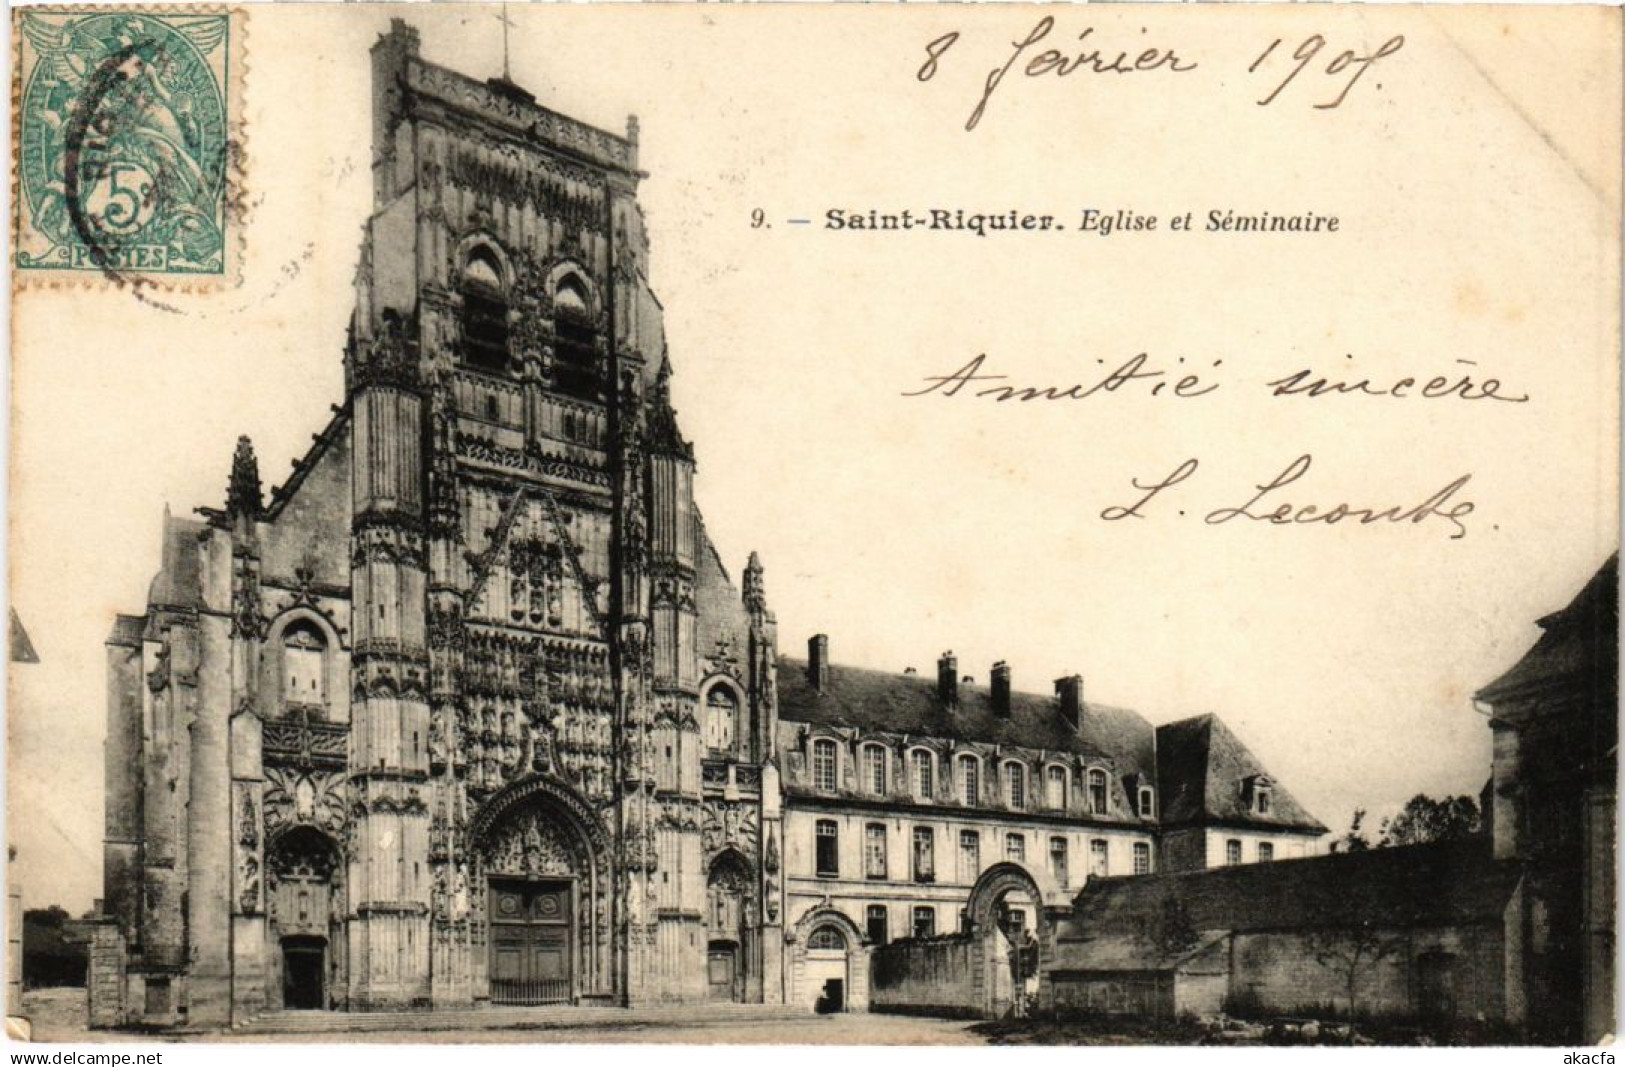 8 février 1905.
5c
POSTES
9. — Saint-Riquier. Eglise et Séminaire
Amitié sincère
L. Leconte.
www.delcampe.net
akacfa